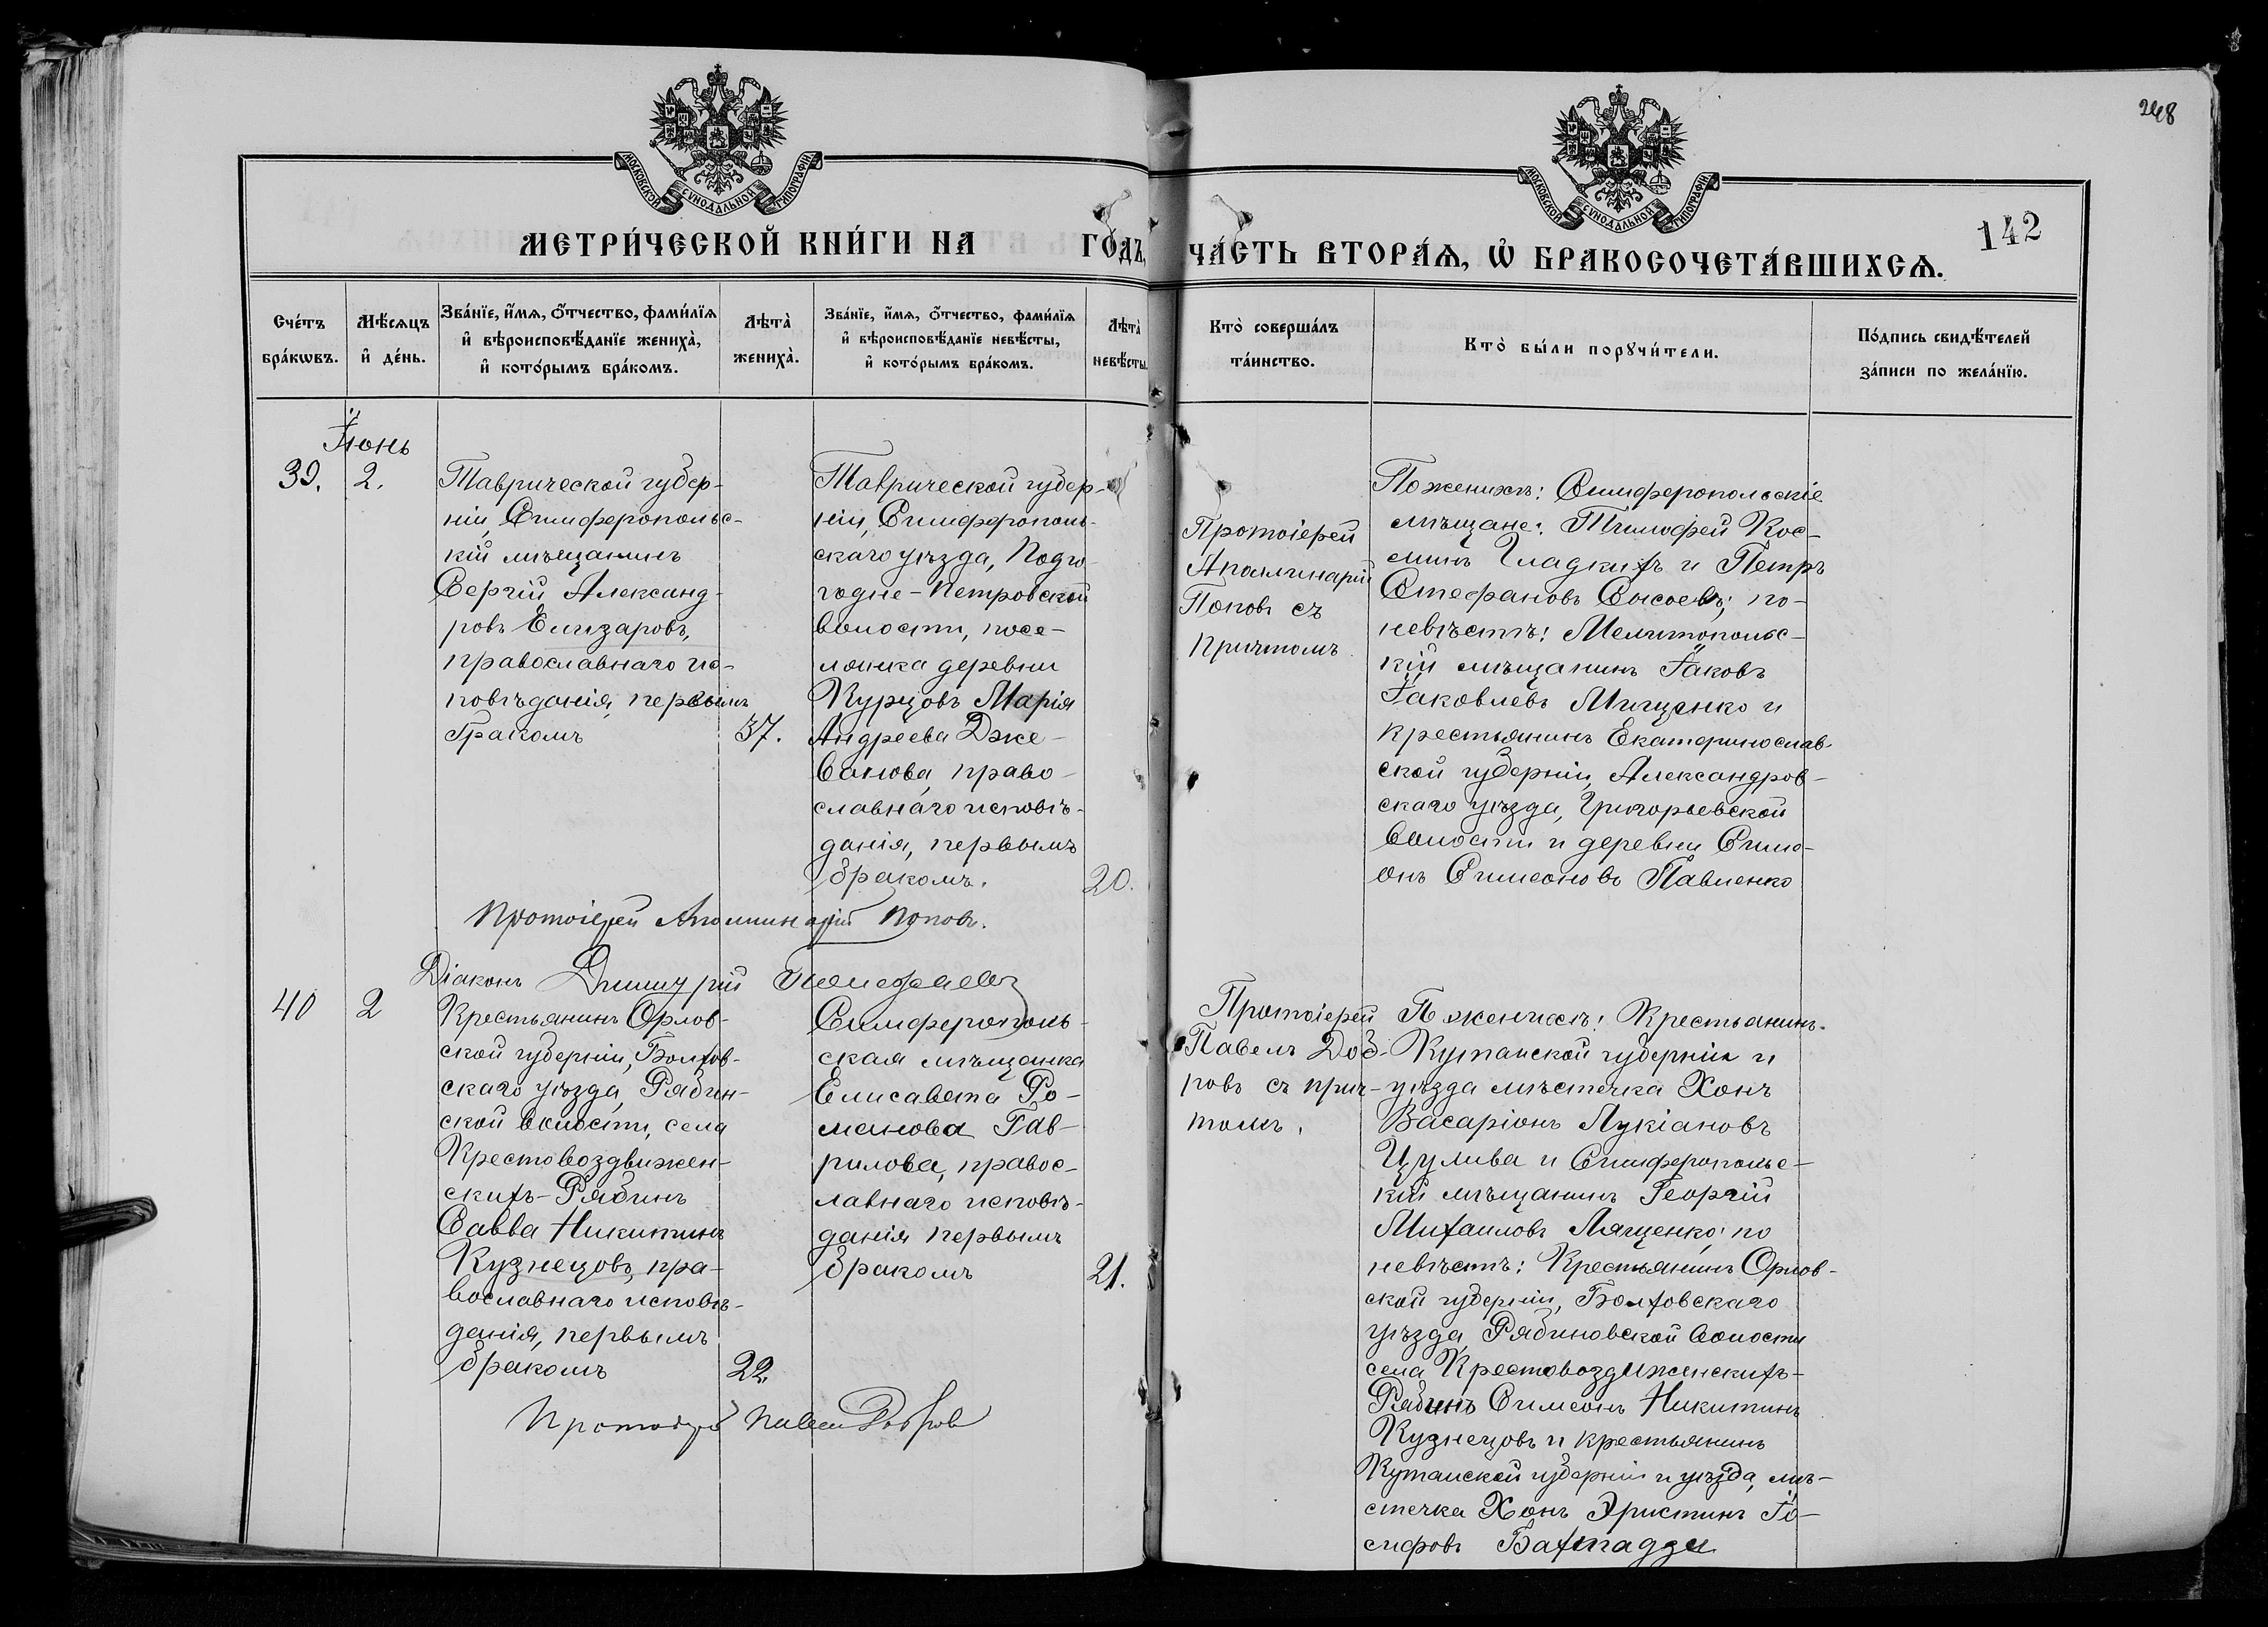 248
МОСКОВСКОЙ СУНОДАЛЬНОЙ ТИПОГРАФІИ
МОСКОВСКОЙ СУНОДАЛЬНОЙ ТИПОГРАФІИ
142
МЕТРИ́ЧЕСКОЙ КНИ́ГИ НА ГОДЪ,
ЧА́СТЬ ВТОРА́Ѧ, Ѡ҆ БРАКОСОЧЕТА́ВШИХСѦ.
Сче́тъ бра́кѡвъ.
Мѣ́сѧцъ и҆ де́нь.
Зва́нїе, и҆́мѧ, ѻ҆́тчество, фами́лїѧ
и҆ вѣроисповѣ́данїе жениха̀,
и҆ кото́рымъ бра́комъ.
Лѣта̀ жениха̀.
Зва́нїе, и҆́мѧ, ѻ҆́тчество, фами́лїѧ
и҆ вѣроисповѣ́данїе невѣ́сты,
и҆ кото́рымъ бра́комъ.
Лѣта̀ невѣ́сты.
Кто̀ соверша́лъ
та́инство.
Кто̀ бы́ли порꙋчи́тели.
По́дпись свидѣ́телей
за́писи по жела́нїю.
Іюнь
39. 2.
Таврической губер-
ніи, Симферопольс-
кій мѣщанинъ
Сергій Александ-
ровъ Елизаровъ,
православнаго ис-
повѣданія, первымъ
бракомъ
37.
Таврической губер-
ніи, Симферополь-
скаго уѣзда, Подго-
родне-Петровской
волости, посе-
лянка деревни
Курцовъ Марія
Андреева Дже-
ванова, право-
славнаго исповѣ-
данія, первымъ
бракомъ.
20.
Протоіерей
Аполлинарій
Поповъ съ
Причтомъ
По женихѣ: Симферопольскіе
мѣщане: Тимофей Кос-
минъ Гладкихъ и Петръ
Стефановъ Сысоевъ; по-
невѣстѣ: Мелитопольс-
кій мѣщанинъ Іаковъ
Іаковлевъ Мищенко и
крестьянинъ Екатеринослав-
ской губерніи, Александров-
скаго уѣзда, Григорьевской
волости и деревни Симе-
онъ Симеоновъ Павленко
Протоіерей Аполлинарій Поповъ.
Діаконъ Димитрій
40 2
Крестьянинъ Орлов-
ской губерніи, Болхов-
скаго уѣзда, Рябин-
ской волости, села
Крестовоздвижен-
скихъ-Рябинъ
Савва Никитинъ
Кузнецовъ, пра-
вославнаго исповѣ-
данія, первымъ
бракомъ
22.
Симферополь-
ская мѣщанка
Елисавета Ро-
манова Гав-
рилова, правос-
лавнаго исповѣ-
данія первымъ
бракомъ
21.
Протоіерей
Павелъ Доб-
ровъ съ прич-
томъ.
По женихѣ: Крестьянинъ
Кутаиской губерніи и
уѣзда мѣстечка Хонъ
Васаріонъ Лукіановъ
Цулива и Симферопольс-
кій мѣщанинъ Георгій
Михаиловъ Лященко; по
невѣстѣ: Крестьянинъ Орлов-
ской губерніи, Болховскаго
уѣзда, Рябиновской волости
села Крестовоздвиженскихъ-
Рябинъ Симеонъ Никитинъ
Кузнецовъ и крестьянинъ
Кутаиской губерніи и уѣзда, мѣ-
стечка Хонъ Эристинъ Іо-
сифовъ Бахтадзе
Протоіерей Павелъ Добровъ